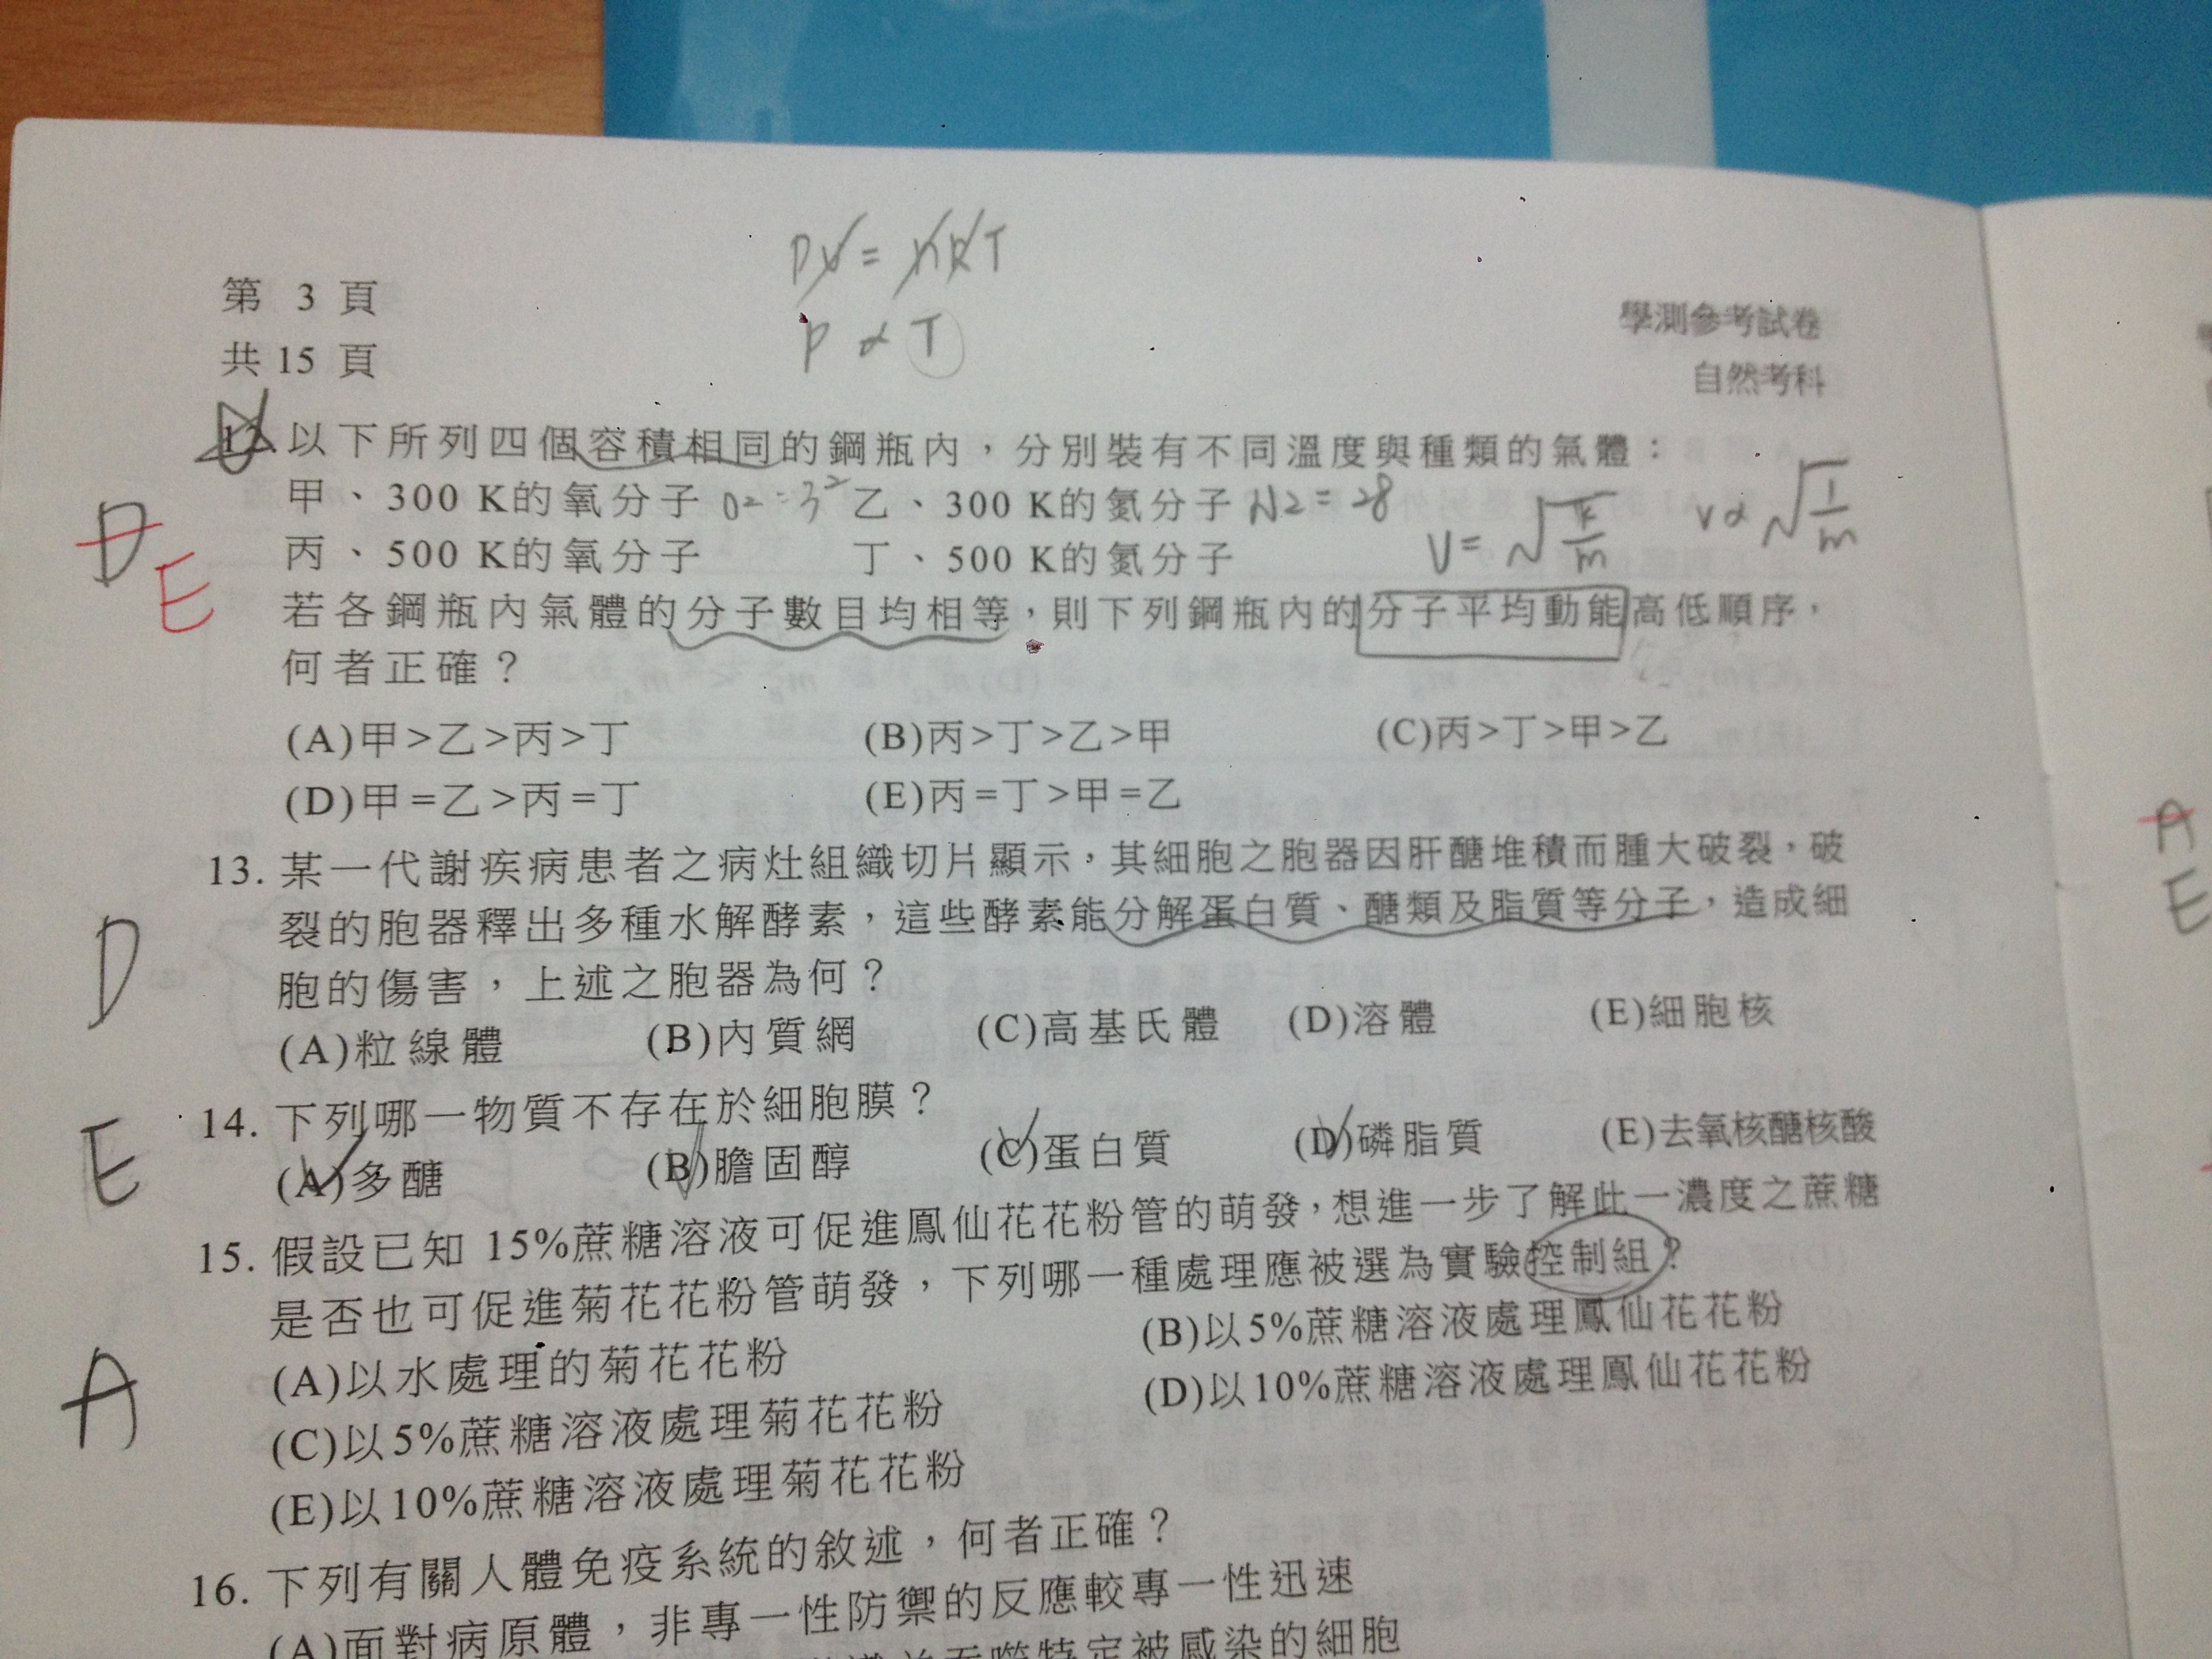 PV = nRT
P ∝ T
第 3 頁
共 15 頁
學測參考試卷
自然考科
12. 以下所列四個容積相同的鋼瓶內，分別裝有不同溫度與種類的氣體：
甲、300 K的氧分子 O2 = 32 乙、300 K的氮分子 N2 = 28
丙、500 K的氧分子 丁、500 K的氮分子
V = √k/m V ∝ √1/m
D E
若各鋼瓶內氣體的分子數目均相等，則下列鋼瓶內的分子平均動能高低順序，
何者正確？
(A)甲>乙>丙>丁 (B)丙>丁>乙>甲 (C)丙>丁>甲>乙
(D)甲=乙>丙=丁 (E)丙=丁>甲=乙
D
13. 某一代謝疾病患者之病灶組織切片顯示，其細胞之胞器因肝醣堆積而腫大破裂，破
裂的胞器釋出多種水解酵素，這些酵素能分解蛋白質、醣類及脂質等分子，造成細
胞的傷害，上述之胞器為何？
(A)粒線體 (B)內質網 (C)高基氏體 (D)溶體 (E)細胞核
E
14. 下列哪一物質不存在於細胞膜？
(A)多醣 (B)膽固醇 (C)蛋白質 (D)磷脂質 (E)去氧核醣核酸
A
15. 假設已知 15%蔗糖溶液可促進鳳仙花花粉管的萌發，想進一步了解此一濃度之蔗糖
是否也可促進菊花花粉管萌發，下列哪一種處理應被選為實驗控制組？
(A)以水處理的菊花花粉 (B)以5%蔗糖溶液處理鳳仙花花粉
(C)以5%蔗糖溶液處理菊花花粉 (D)以10%蔗糖溶液處理鳳仙花花粉
(E)以10%蔗糖溶液處理菊花花粉
16. 下列有關人體免疫系統的敘述，何者正確？
(A)面對病原體，非專一性防禦的反應較專一性迅速
吞噬特定被感染的細胞
A
E